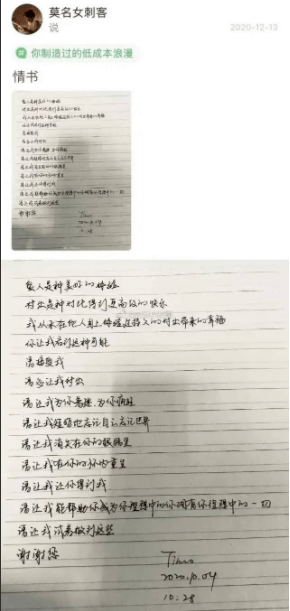 莫名女刺客
说
2020-12-13
你制造过的低成本浪漫
情书
爱人是种美好的体验
付出是种对比得到更高级的快乐
我从未在他人身上体验过持久的付出带来的幸福
你让我看到这种可能
请接受我
请应允我付出
请让我为你着迷、为你疯狂
请让我短暂地忘记自己忘记世界
请让我消失在你的眼睛里
请让我在你的怀内重生
请让我让你得到我
请让我能帮助你成为你理想中的你拥有你理想中的一切
请让我试着做到这些
谢谢您
2020.10.04
10:28